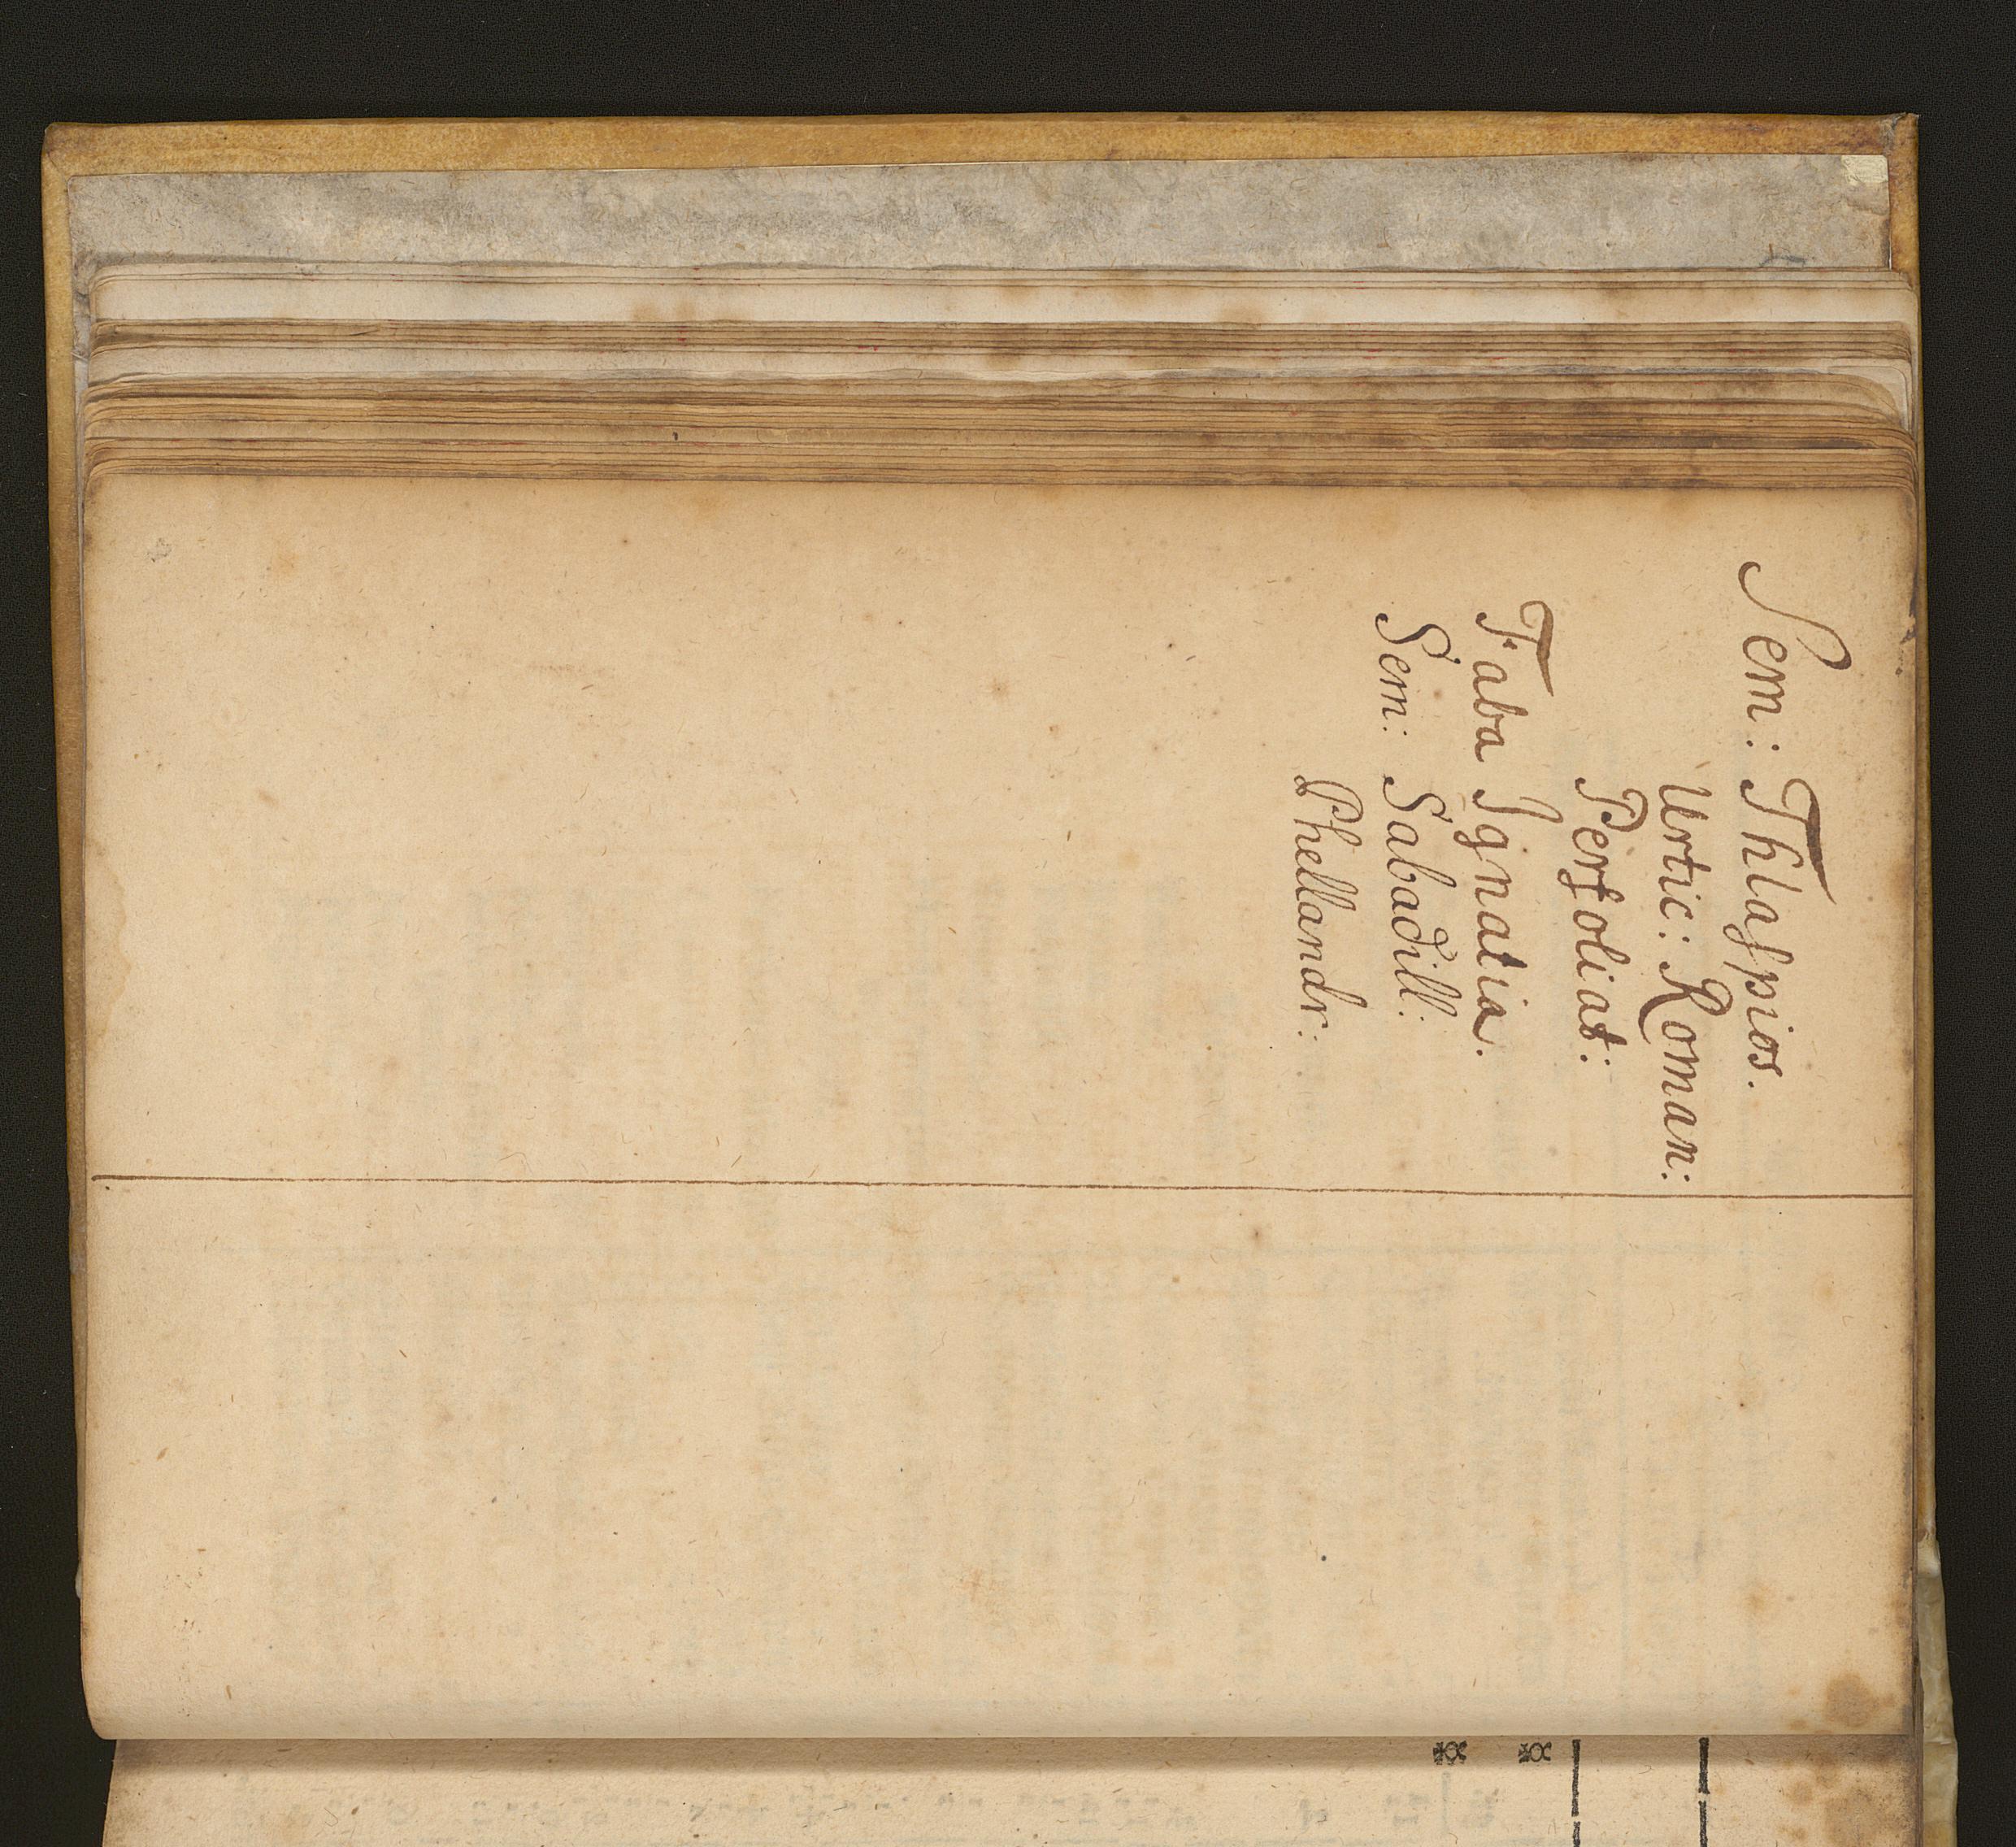 Sem: Thlaſpios.
Urtic: Roman:
Perfoliat:
Faba Ignatia.
Sem: Sabadill:
Phellandr: